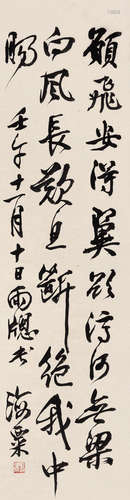 願飛安得翼欲濟河無梁
向風長歎息斷絕我中
腸 壬午十一月十日雨牕書 海粟